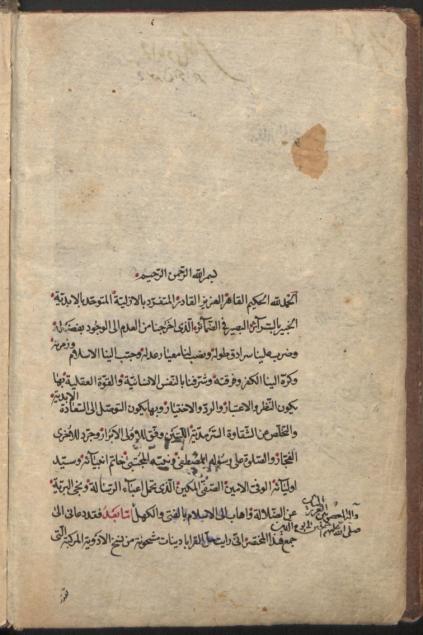 بسم الله الرحمن الرحيم
الحمد لله الحكيم القاهر العزيز القادر المتفرد بالازلية المتوحد بالابدية
الخبير بالسرآئر البصير في الضمآئر الذى اخرجنا من العدم الى الوجود بفضله
وضرب علينا سرادق طوله ونصب لنا معيار عدله وحبب الينا الاسلام وزمرته
وكره الينا الكفر وفرقته وشرفنا بالنفس الانسانية والقوة العقلية بها
يكون النظر والاعتبار والرد والاختيار وبها يكون التوصل الى السعادة الابدية
والتخلص من الشقاوة السرمدية
المختار والصلوة على رسوله المصطفى ونبيه المجتبى خاتم انبيائه وسيد
اوليائه الوفى الامين الصفى المكين الذى تحمل اعباء الرسالة ونجى البرية
عن الضلالة واهاب الى الاسلام بالفتى والكهل اما بعد فقد دعانى الى
جمع هذا المختصر انى رايت جل القرابادينات مشحونة من نسخ الادوية المركبة التى